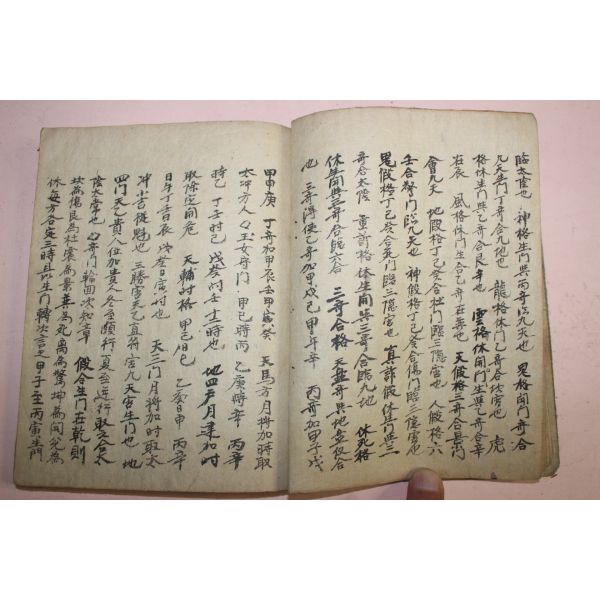 臨太陰也 神格生門與丙奇臨九天也 鬼格開門奇合
九天生門丁奇合九地也 龍格休門乙奇合坎宮也 虎
格休生門與乙奇合艮辛也 雲格休開門生與乙奇合辛
在辰 風格休門生合乙奇在巽也 天假格三奇合景門
會九天 地假格丁己癸合杜門臨三隱宮也 人假格六
壬合驚門臨九天也 神假格丁己癸合傷門臨三隱宮也
鬼假格丁己癸合死門臨三隱宮也 真詐假休生開與三
奇合太陰 重詐格休生開與三奇合臨九地 休詐格
休生開與三奇合臨六合 三奇合格 天盤奇與地盤儀合
也 三奇得使乙奇加甲戌己甲午辛 丙奇加甲子戊
甲申庚 丁奇加甲辰壬甲寅癸 天馬方月將加時取
太冲方人 玉女守門 甲己時丙 乙庚時辛 丙辛
時乙 丁壬時己 戊癸時壬 十二時也 地四戶月建加時
取除定開危 天輔時格 甲己日巳 乙庚日申 丙辛
日午 丁壬日辰 戊癸日寅時也 天三門月將加時取太
冲小吉從魁也 三勝宮天乙直符宮九天宮生門也 地
四門天乙貴人位加貴人冬至順行夏至逆行取六合太
陰太常也 奇門輪面次知章 假令生門在乾則
坎為傷艮為杜震為景巽為死離為驚坤為開兌為
休每方各定三時且以生門轉次言之甲子至丙寅生門